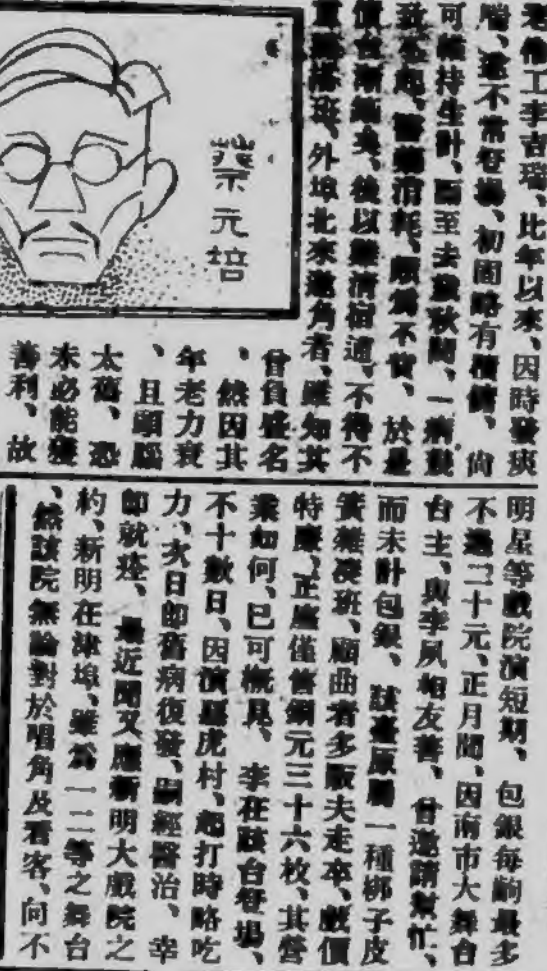 老伶工李吉瑞、比年以來、因時發痰
喘、遂不常登場、初固略有積蓄、尚
可維持生計、而至去歲秋間、一病幾
致不起、醫藥消耗、頗爲不貲、於是
後以 不得不
班、外埠北來邀角者、雖知其
曾負盛名
、然因其
年老力衰
、且頭腦
太舊、恐
未必能獲
善利、故
蔡元培
明星等戲院演短期、包銀每齣最多
不過二十元、正月間、因南市大舞台
台主、與李夙相友善、曾邀請幫忙、
而未計包銀、該台原屬一種梆子皮
簧雜湊班、顧曲者多販夫走卒、戲價
特廉、正座僅售銅元三十六枚、其營
業如何、已可概見、李在該台登場、
不十數日、因演惡虎村、起打時略吃
力、次日即舊病復發、嗣經醫治、幸
即就痊、最近聞又應新明大戲院之
約、新明在津埠、雖爲一二等之舞台
、然該院無論對於唱角及看客、向不